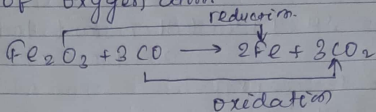 of oxygen
reduction.
Fe₂O₃ + 3CO → 2Fe + 3CO₂
oxidation